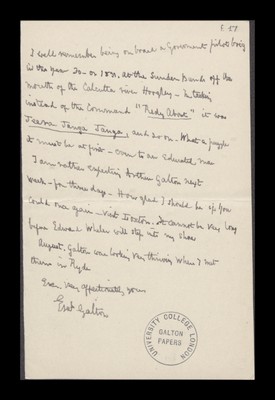 I well remember being on board a Government pilot brig
in the year 30 or 1831, at the Sunder Bunds off the
mouth of the Calcutta river Hooghly –
instead of the Command "Redy About" it was
Jeewa Janga Janga, and so on. What a puzzle
it must be at first – even to an Educated man
I am rather expecting Arthur Galton next
week – for three days – How glad I should be if you
could once again visit Loxton. It cannot be very long
before Edward Wheler will step into my shoes
August, Galton was looking very thriving when I met
them in Ryde
Ever, very affectionately yours
Erat Galton
UNIVERSITY COLLEGE LONDON
GALTON
PAPERS